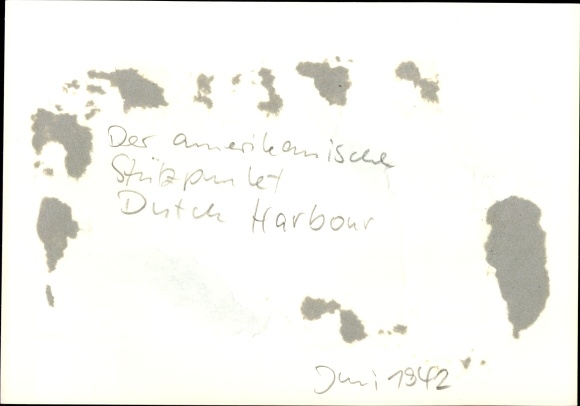 Der amerikanische
Stützpunkt
Dutch Harbour
Juni 1942